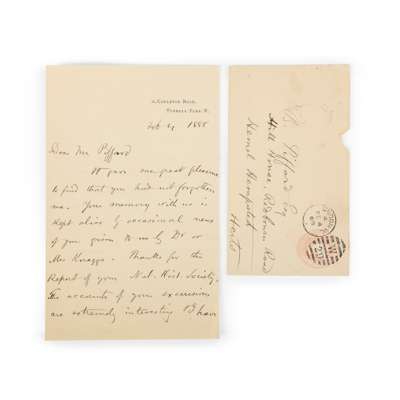 Feb 4 1888
Dear Mr Piffard
It gave me great pleasure
to find that you had not forgotten
me. Your memory with us is
kept alive by occasional news
of you given to us by Dr or
Mrs Thanks for the
Report of your Nat. Hist Society.
The accounts of your excursions
are extremely interesting
B. Piffard Esq
Hill House, Road
Hemel Hempstead
Herts